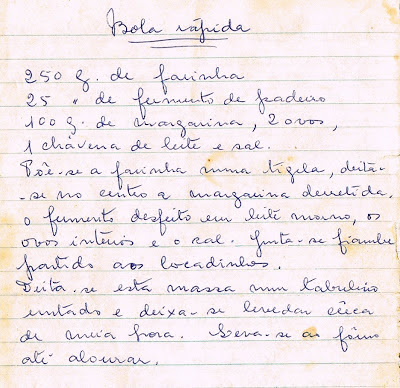 Bola rápida
250 g. de farinha
25 " de fermento de padeiro
100 g. de margarina, 2 ovos,
1 chávena de leite e sal.
Põe-se a farinha numa tigela, deita-
-se no centro a margarina derretida.
o fermento desfeito em leite morno, os
ovos inteiros e o sal. Junta-se fiambre
partido aos bocadinhos.
Deita-se esta massa num tabuleiro
untado e deixa-se levedar cêrca
de meia hora. Leva-se ao fôrno
até alourar.